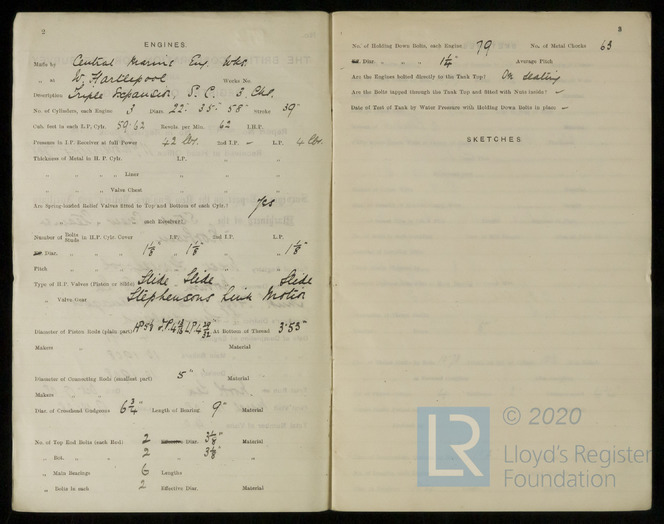 2
ENGINES.
Made by Central Marine Eng. Wks.
„ at W. Hartlepool Works No.
Description Triple Expansion, S. C. 3 Cyls.
No. of Cylinders, each Engine 3 Diars. 22" 35" 58" Stroke 39"
Cub. feet in each L.P. Cylr. 59.62 Revols. per Min. 62 I.H.P.
Pressure in I.P. Receiver at full Power 42 lbs. 2nd I.P. – L.P. 4 lbs.
Thickness of Metal in H. P. Cylr. I.P. „ L.P.
„ „ „ „ Liner „ „ „
„ „ „ Valve Chest „ „ „
Are Spring-loaded Relief Valves fitted to Top and Bottom of each Cylr.? Yes
„ „ „ each Receiver?
Number of Bolts Studs in H.P. Cylr. Cover I.P. 2nd I.P. L.P.
Diar. „ „ „ 1 1/8" „ 1 1/8" „ „ 1 1/8"
Pitch „ „ „ „ „
Type of H.P. Valves (Piston or Slide) Slide Slide Slide
„ Valve Gear Stephensons Link Motion
Diameter of Piston Rods (plain part) At Bottom of Thread 3.53"
Makers Material
Diameter of Connecting Rods (smallest part) 5" Material
Makers Material
Diar. of Crosshead Gudgeons 6 3/4" Length of Bearing 9" Material
No. of Top End Bolts (each Rod) 2 Diar. 3 1/8" Material
„ Bot. „ „ 2 „ 3 1/8" „
„ Main Bearings 6 Lengths
„ Bolts in each 2 Effective Diar. Material
3
No. of Holding Down Bolts, each Engine 79 No. of Metal Chocks 63
Diar. „ „ „ 1 1/4" Average Pitch
Are the Engines bolted directly to the Tank Top? On seating
Are the Bolts tapped through the Tank Top and fitted with Nuts inside? –
Date of Test of Tank by Water Pressure with Holding Down Bolts in place –
SKETCHES.
LR © 2020
Lloyd's Register
Foundation